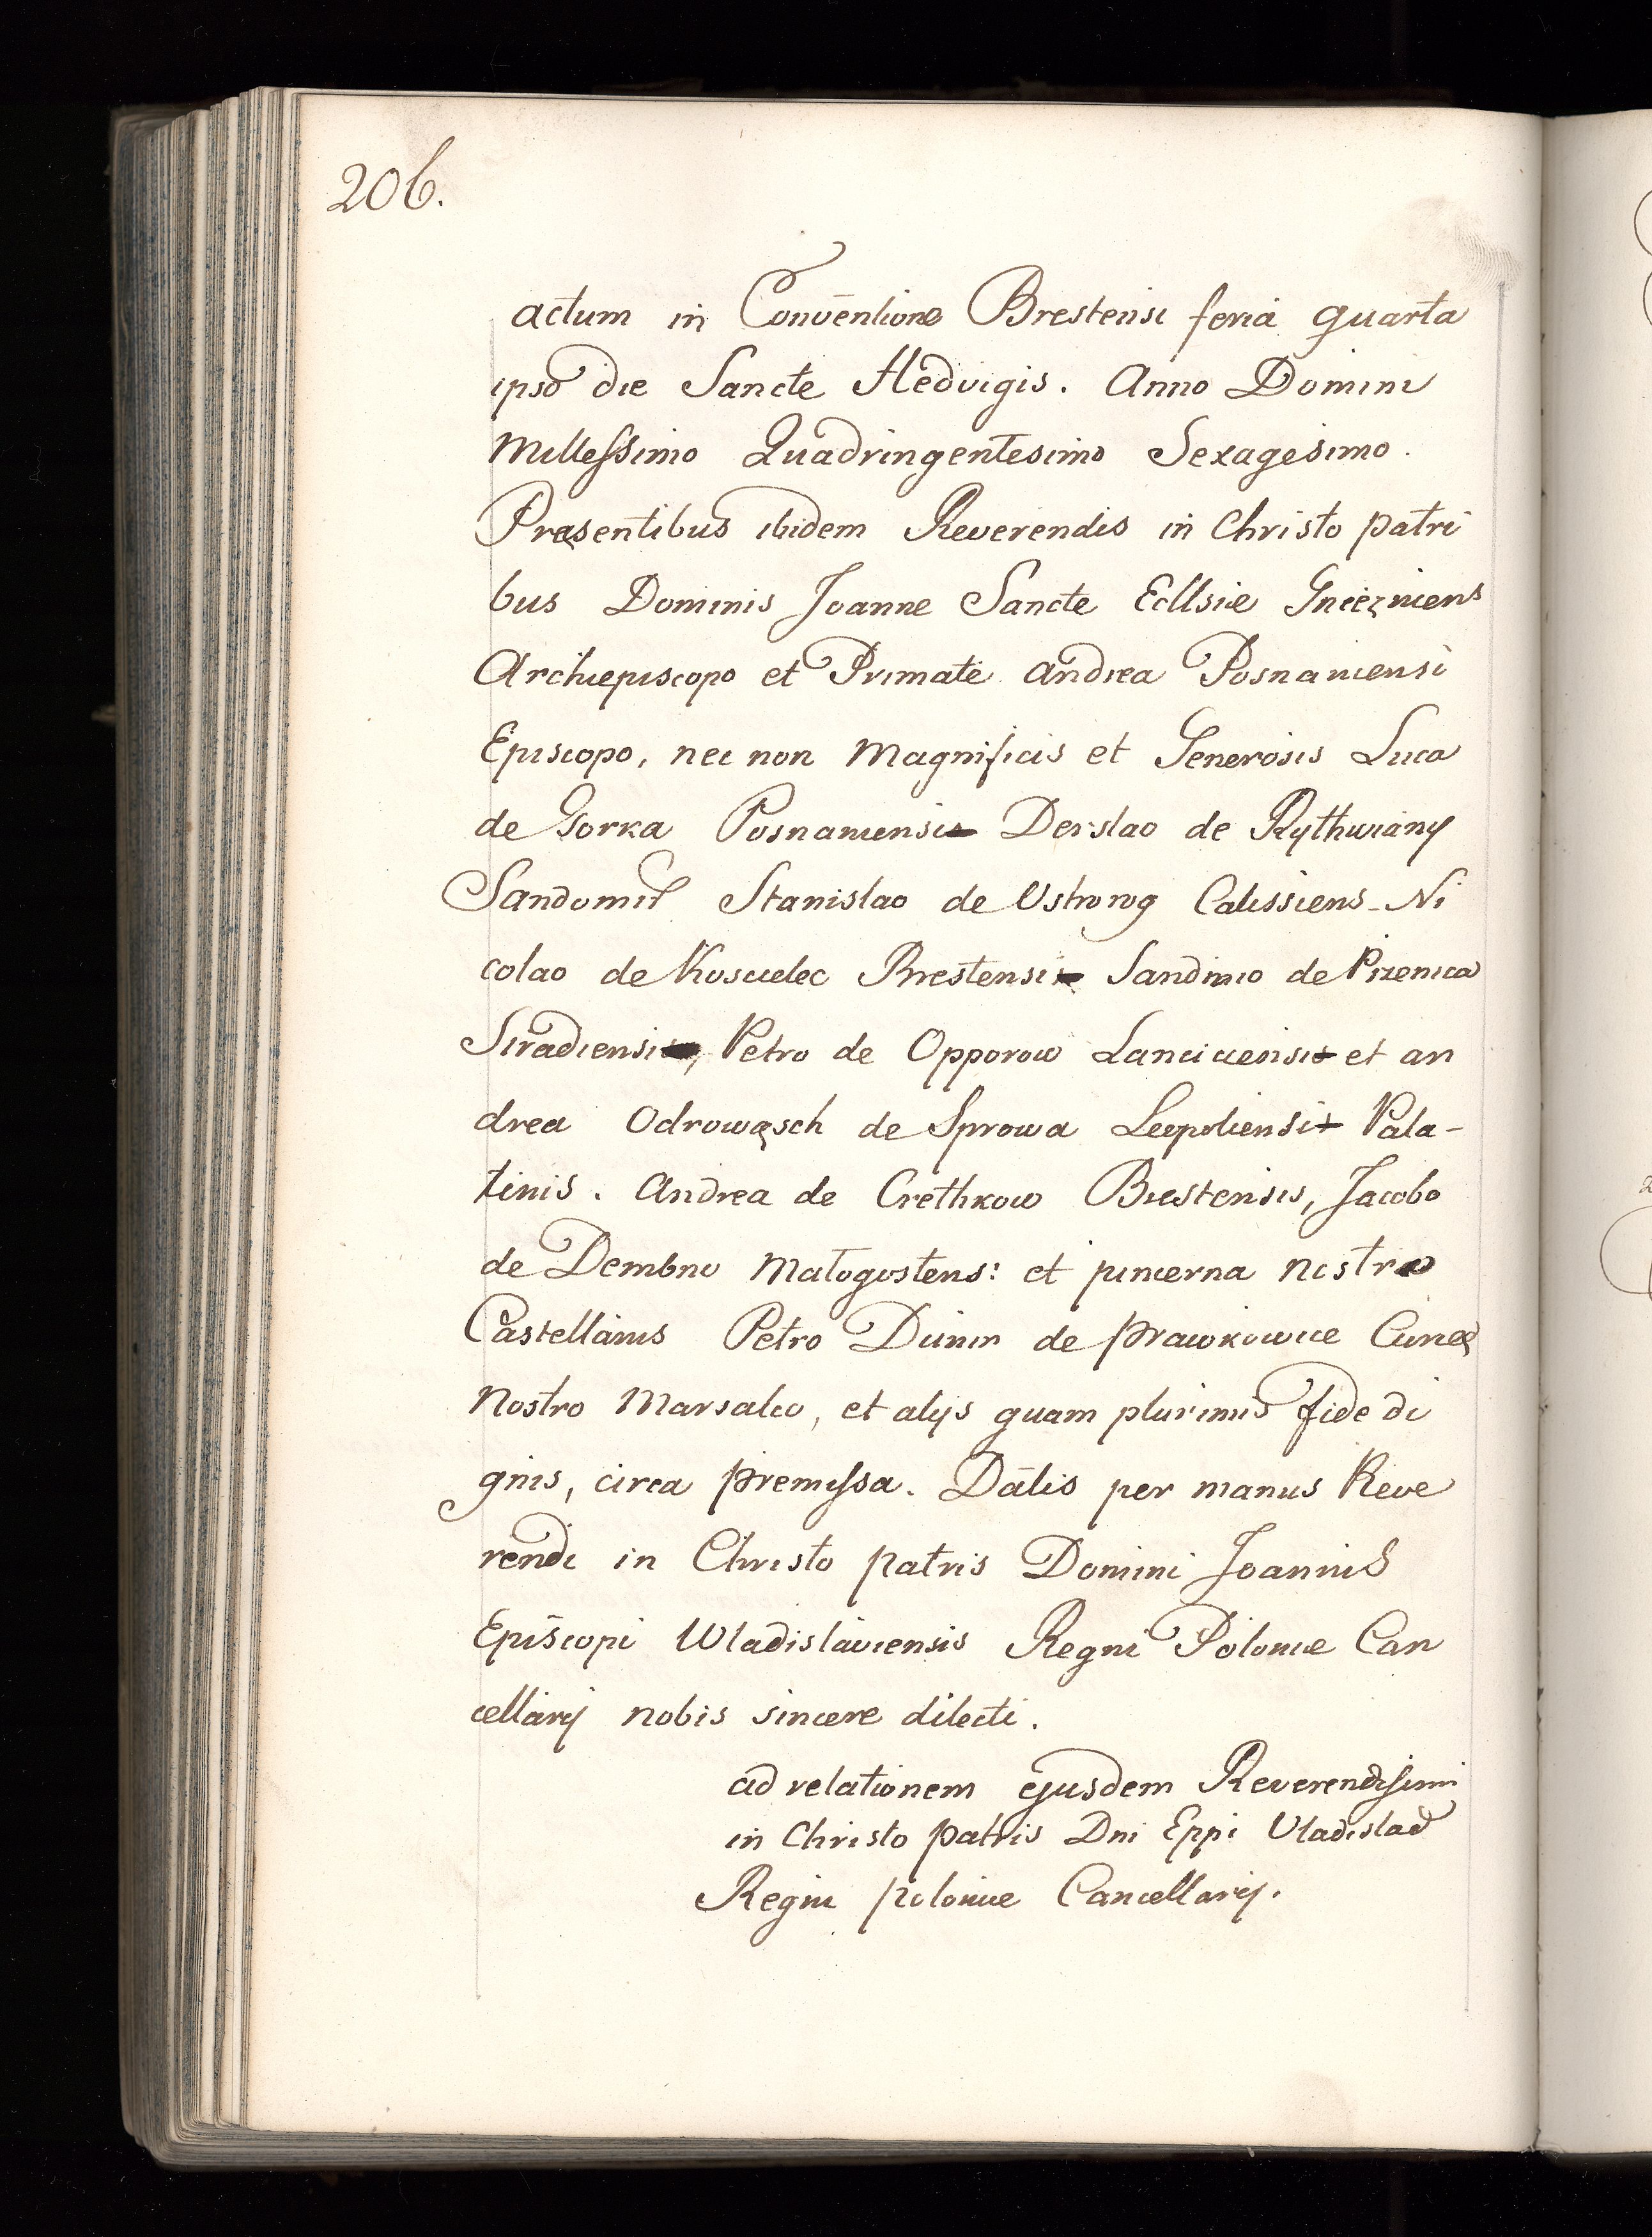 206.
actum in Conventione Brestensi feria quarta
ipso die Sancte Hedvigis. Anno Domini
Millessimo Quadringentesimo Sexagesimo.
Pręsentibus ibidem Reverendis in Christo patri
bus Dominis Joanne Sancte Ecllsie Gniezniens
Archiepiscopo et Primate Andrea Posnaniensi
Episcopo, nec non Magnificis et Generosis Luca
de Gorka Posnaniensi Derslao de Rythwiany
Sandomir Stanislao de Ostrorog Calissiens Ni
colao de Koscielec Brestensi Sandivio de
Siradiensi, Petro de Opporow Lanciciensi et an
drea Odrowąsch de Sprowa Leopoliensi Pala-
tinis. Andrea de Crethkow Brestensis, Jacobo
de Dembno Małogostens: et pincerna nostro
Castellanis Petro Dunin de Prawkowice Curię
nostro Marsalco, et alijs quam plurimis fide di
gnis, circa premissa. Datis per manus Reve
rendi in Christo patris Domini Joannis
Episcopi Wladislaviensis Regni Polonie Can
cellarij nobis sincere dilecti.
ad relationem ejusdem Reverendissimi
in Christo patris Dni Eppi Vladislad
Regni polonie Cancellarij.